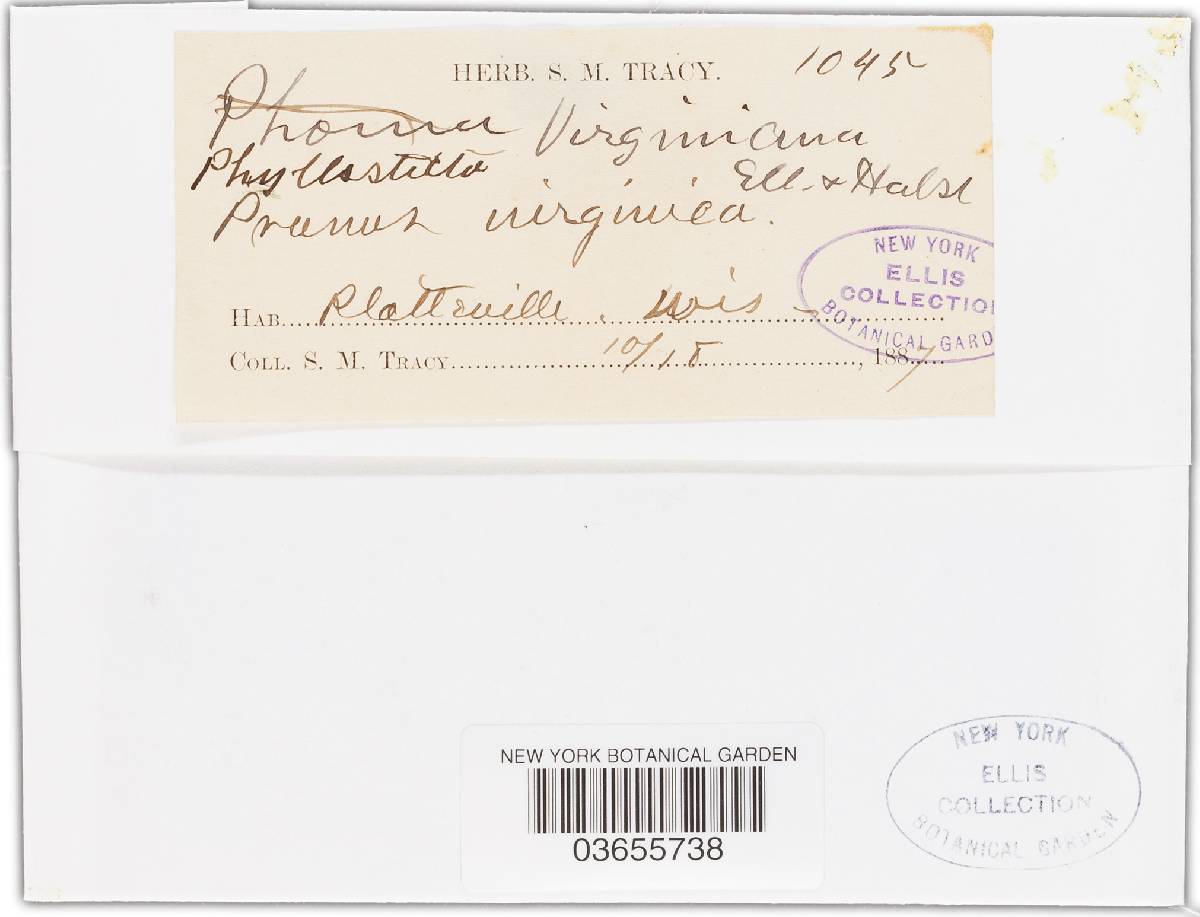 HERB. S. M. TRACY. 1045
Phoma Virginiana
Phyllosticta Ell. & Halst
Prunus virginica.
HAB. Platteville, Wis
COLL. S. M. TRACY. 10/18, 1887
NEW YORK
ELLIS
COLLECTION
BOTANICAL GARD
NEW YORK BOTANICAL GARDEN
03655738
NEW YORK
ELLIS
COLLECTION
BOTANICAL GARDEN